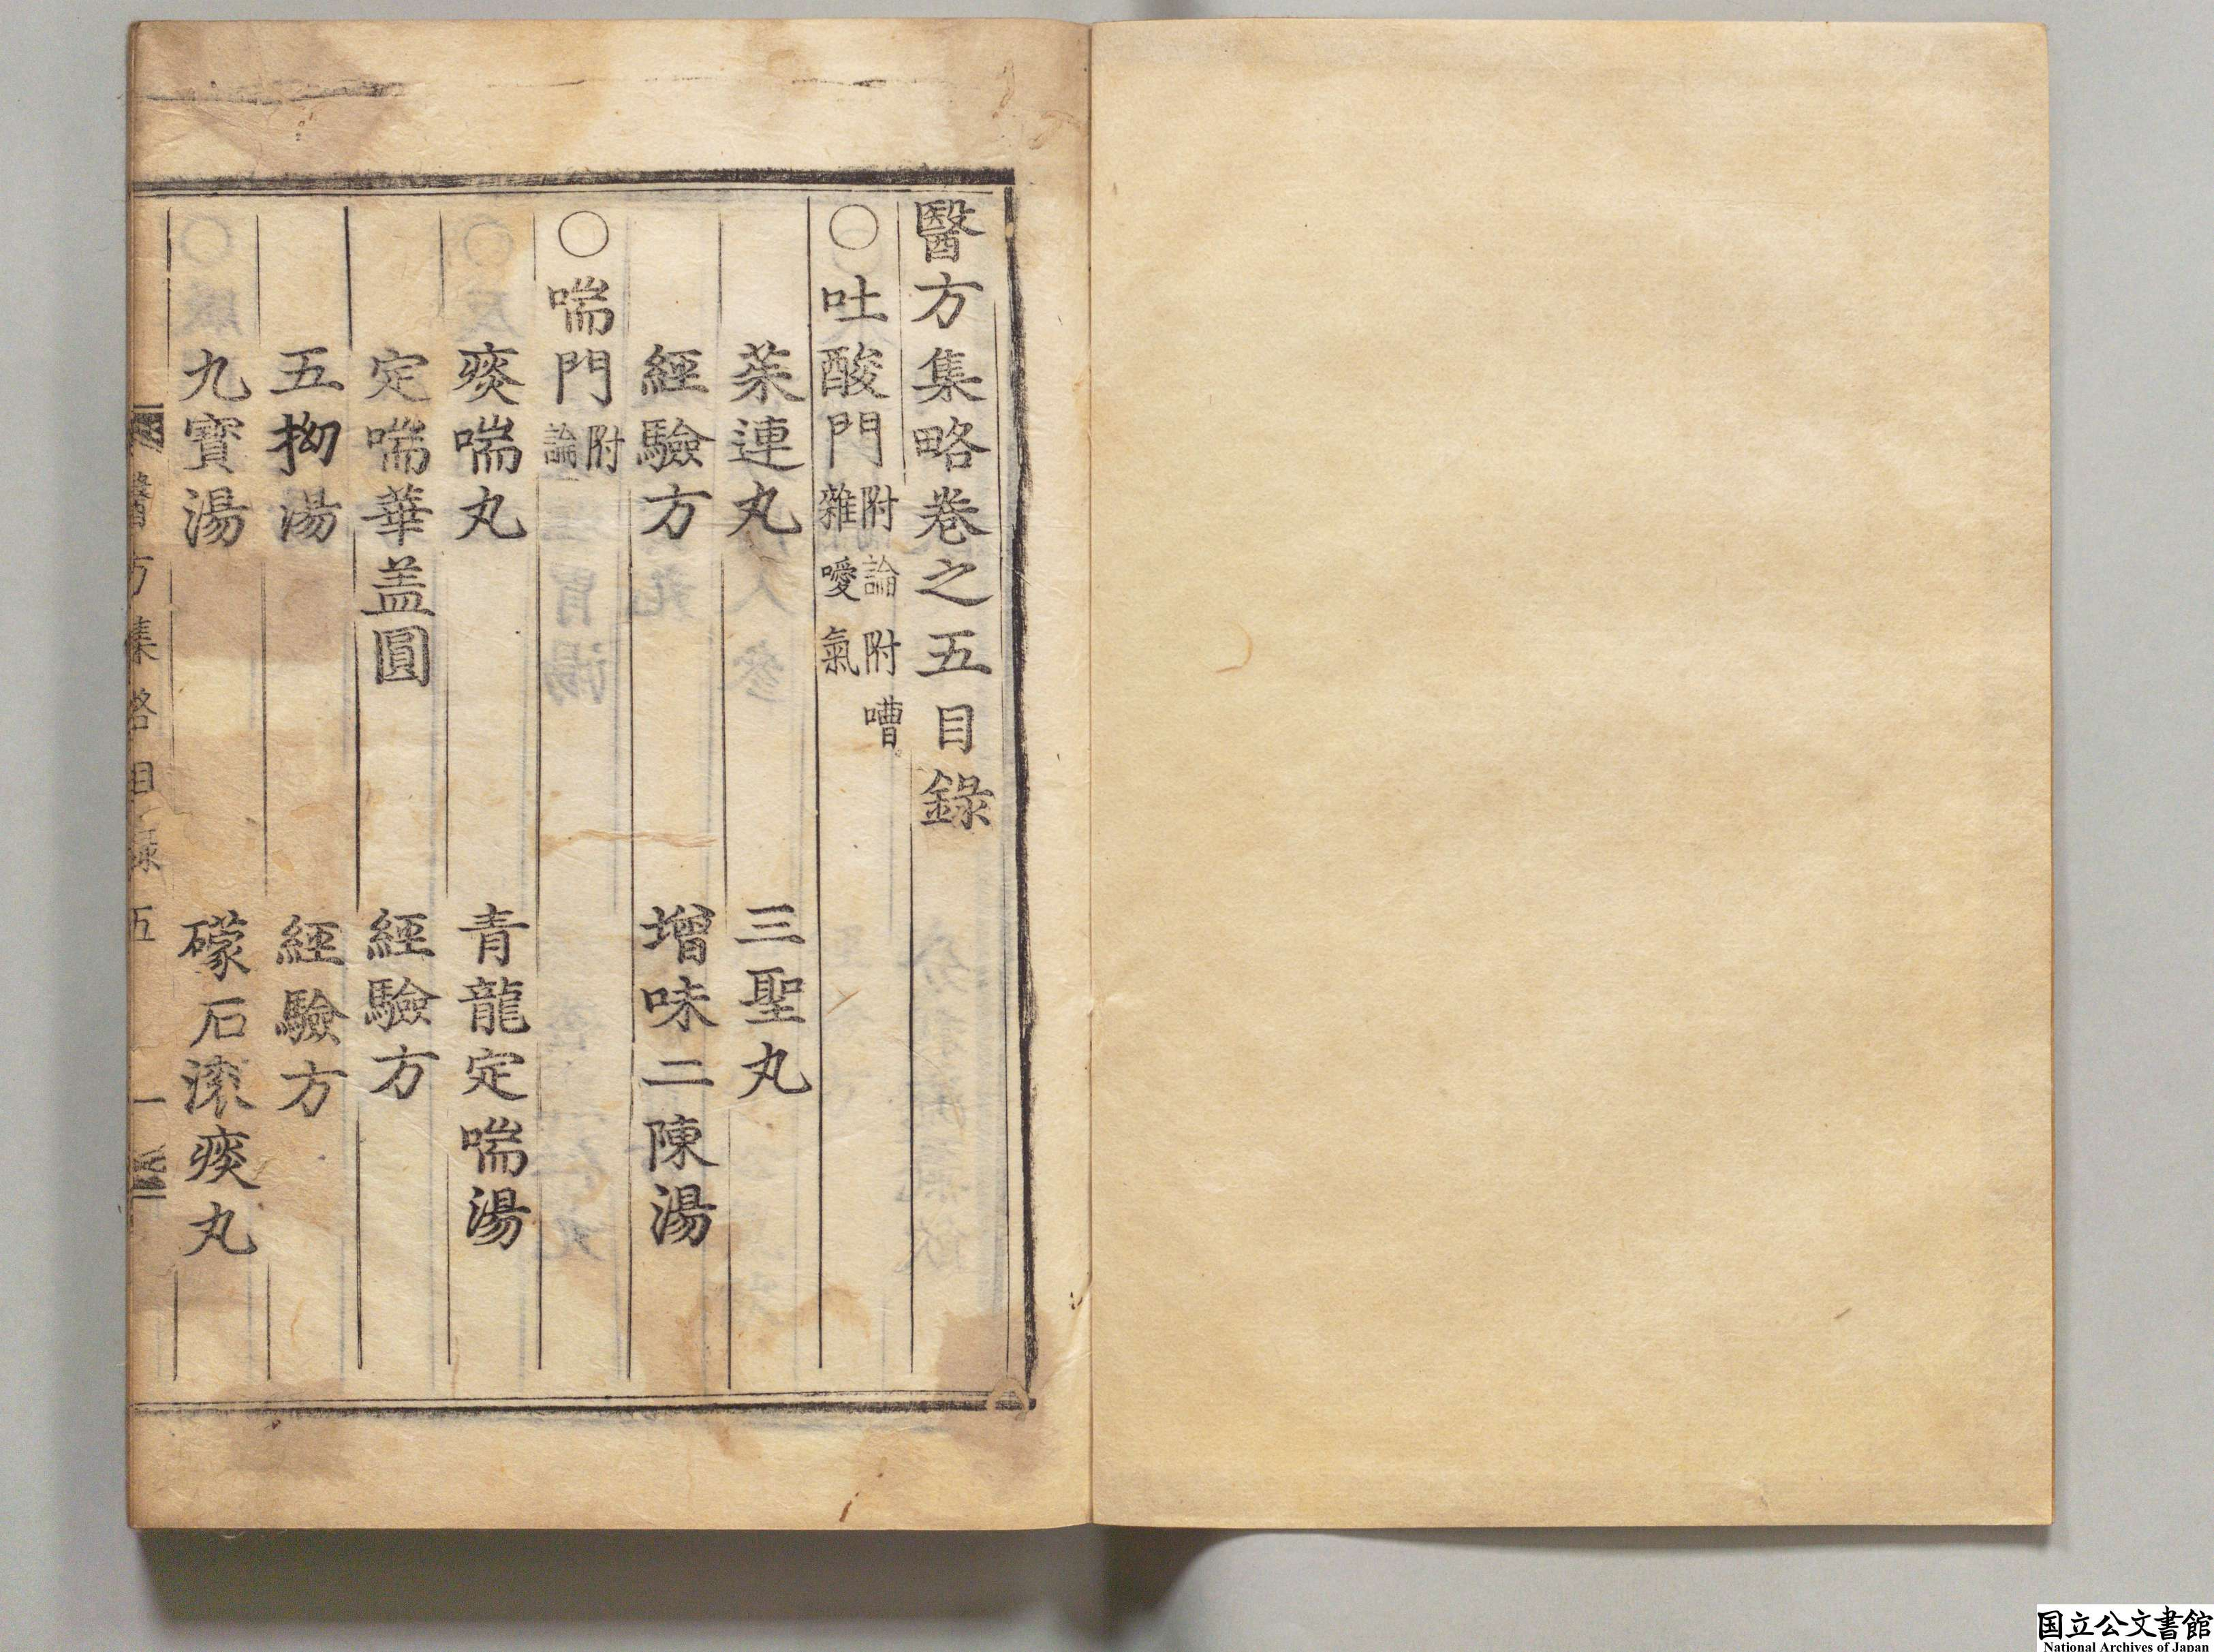 醫方集略卷之五目錄
○吐酸門 附論 附嘈雜噯氣
茱連丸 三聖丸
經驗方 增味二陳湯
○喘門 附論
痰喘丸 青龍定喘湯
定喘華盖圓 經驗方
五拗湯 經驗方
九寶湯 礞石滚痰丸
醫方集略目錄五 一
国立公文書館
National Archives of Japan